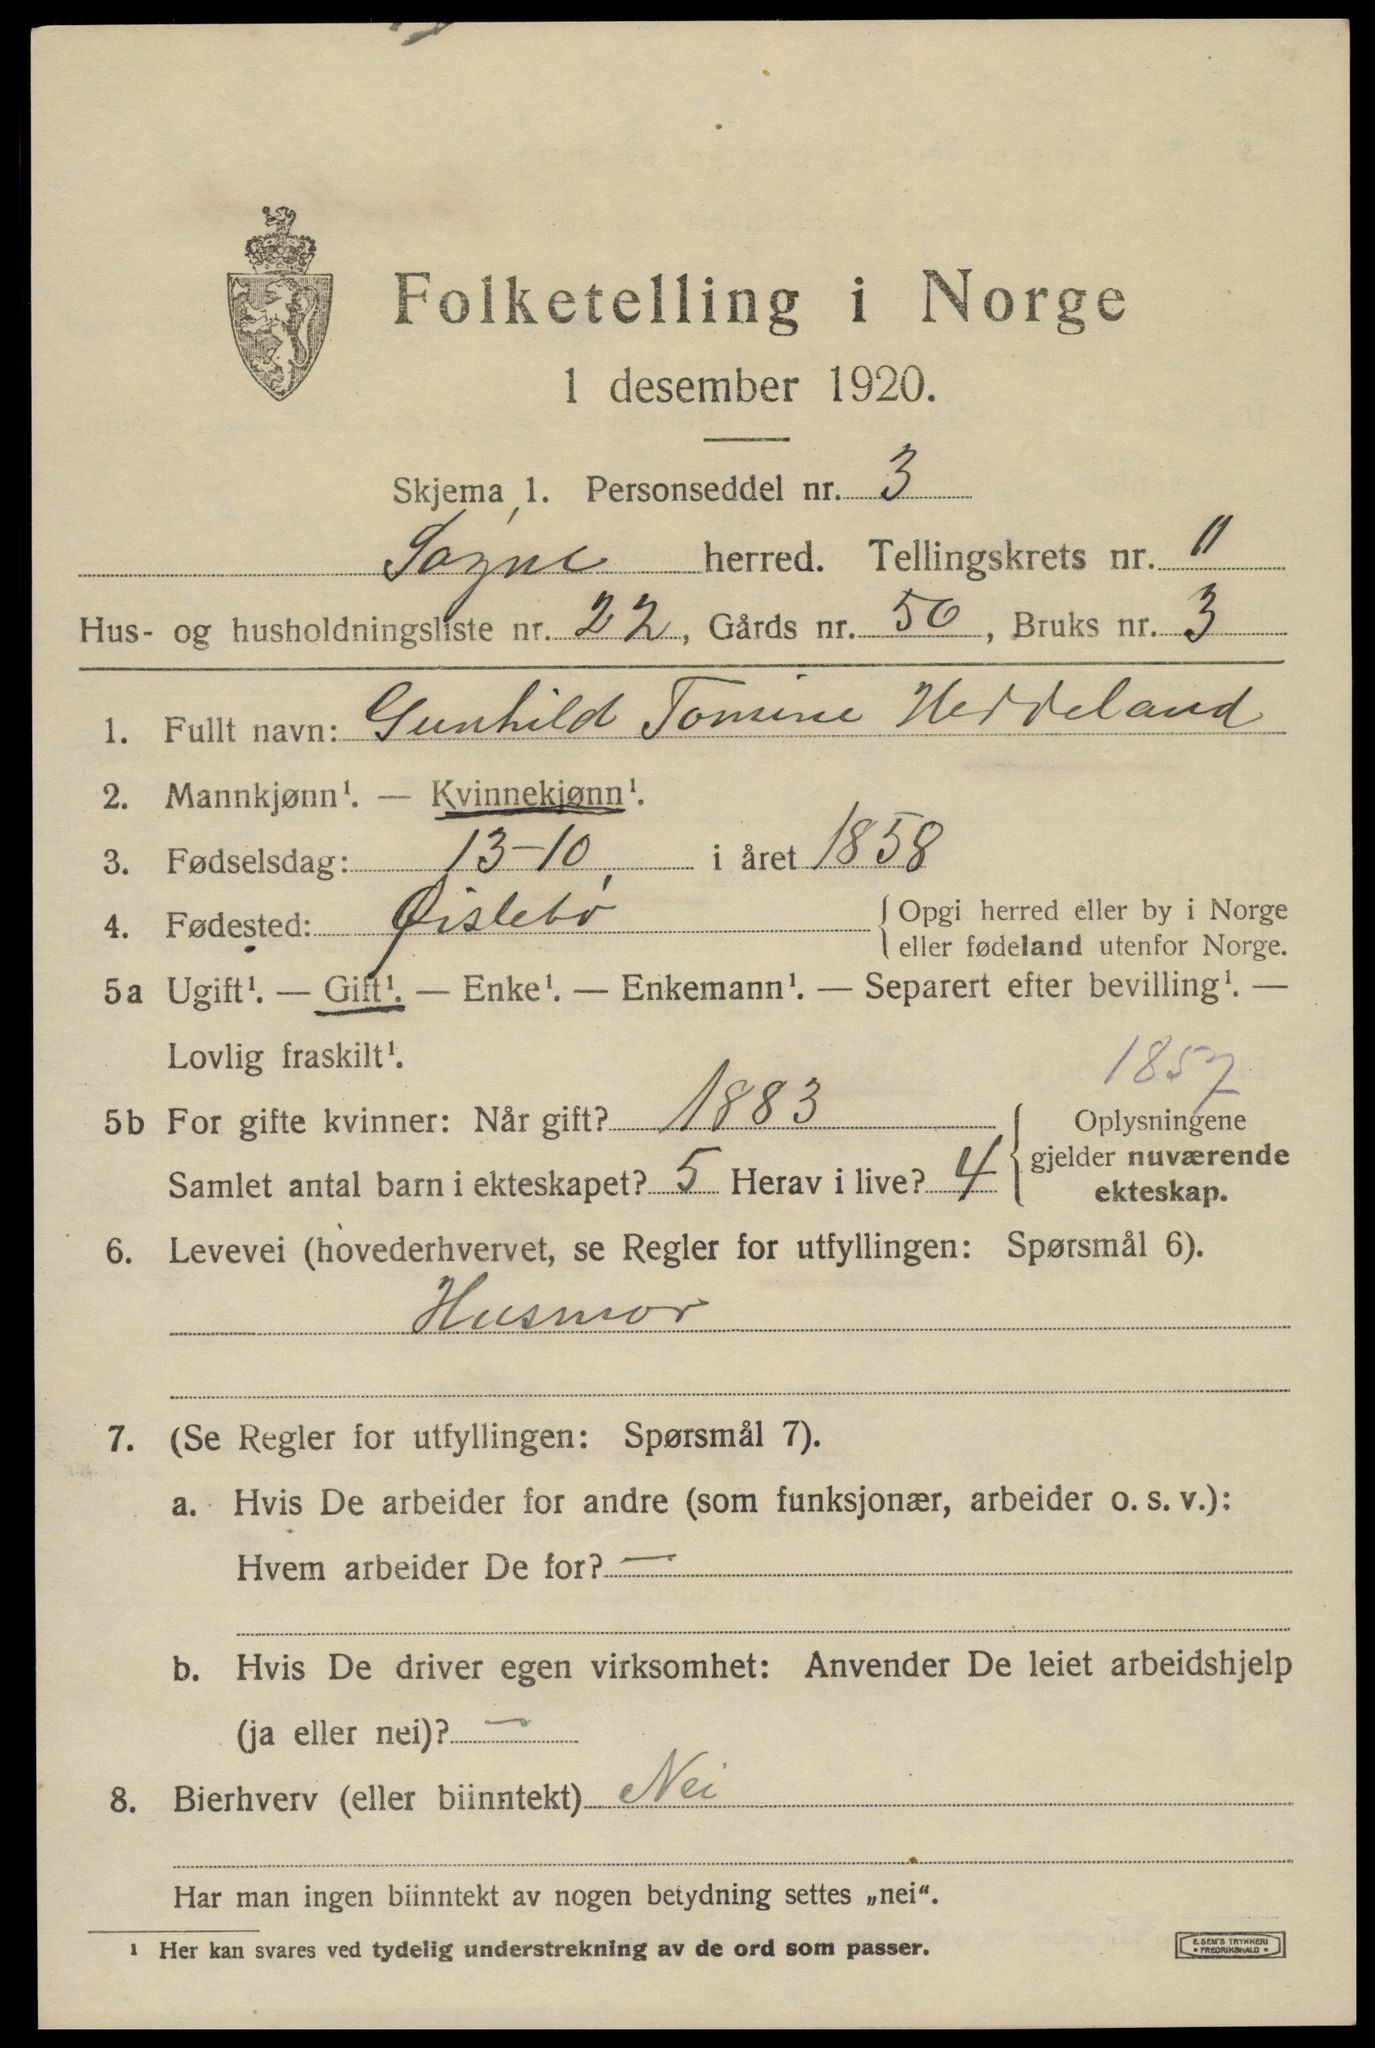 Folketelling i Norge
1 desember 1920.
Skjema 1. Personseddel nr. 3
Søgne herred. Tellingskrets nr. 11
Hus- og husholdningsliste nr. 22, Gårds nr. 50, Bruks nr. 3
1. Fullt navn: Gunhild Tomine Heddeland
2. Mannkjønn¹. — Kvinnekjønn¹.
3. Fødselsdag: 13-10 i året 1858
4. Fødested: Øislebø { Opgi herred eller by i Norge
eller fødeland utenfor Norge.
5a Ugift¹. — Gift¹. — Enke¹. — Enkemann¹. — Separert efter bevilling¹. —
Lovlig fraskilt¹.
1857
5b For gifte kvinner: Når gift? 1883
Samlet antal barn i ekteskapet? 5 Herav i live? 4
{ Oplysningene
gjelder nuværende
ekteskap.
6. Levevei (hovederhvervet, se Regler for utfyllingen: Spørsmål 6).
Husmor
7. (Se Regler for utfyllingen: Spørsmål 7).
a. Hvis De arbeider for andre (som funksjonær, arbeider o. s. v.):
Hvem arbeider De for? —
b. Hvis De driver egen virksomhet: Anvender De leiet arbeidshjelp
(ja eller nei)? —
8. Bierhverv (eller biinntekt) Nei
Har man ingen biinntekt av nogen betydning settes „nei“.
¹ Her kan svares ved tydelig understrekning av de ord som passer.
E. SEM'S TRYKKERI
• FREDRIKSHALD •